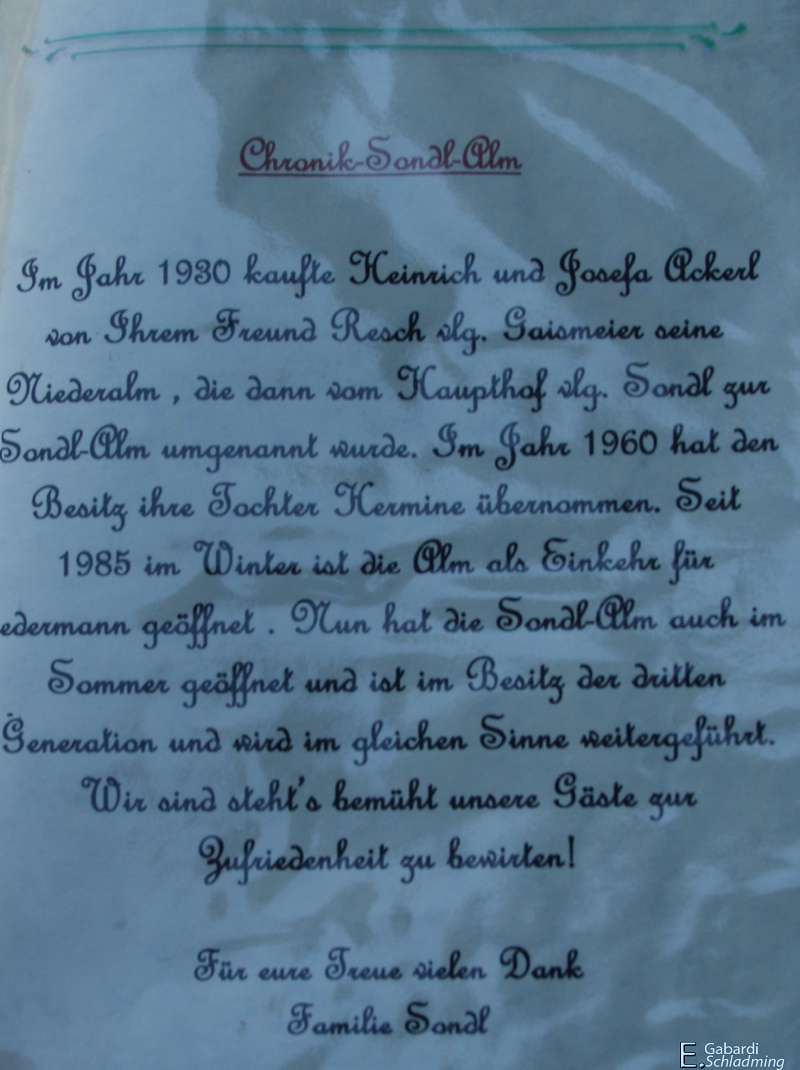 Chronik-Sondl-Alm
Im Jahr 1930 kaufte Heinrich und Josefa Ackerl
von Ihrem Freund Resch vlg. Gaismeier seine
Niederalm , die dann vom Haupthof vlg. Sondl zur
Sondl-Alm umgenannt wurde. Im Jahr 1960 hat den
Besitz ihre Tochter Hermine übernommen. Seit
1985 im Winter ist die Alm als Einkehr für
edermann geöffnet . Nun hat die Sondl-Alm auch im
Sommer geöffnet und ist im Besitz der dritten
Generation und wird im gleichen Sinne weitergeführt.
Wir sind steht's bemüht unsere Gäste zur
Zufriedenheit zu bewirten!
Für eure Treue vielen Dank
Familie Sondl
E. Gabardi
Schladming